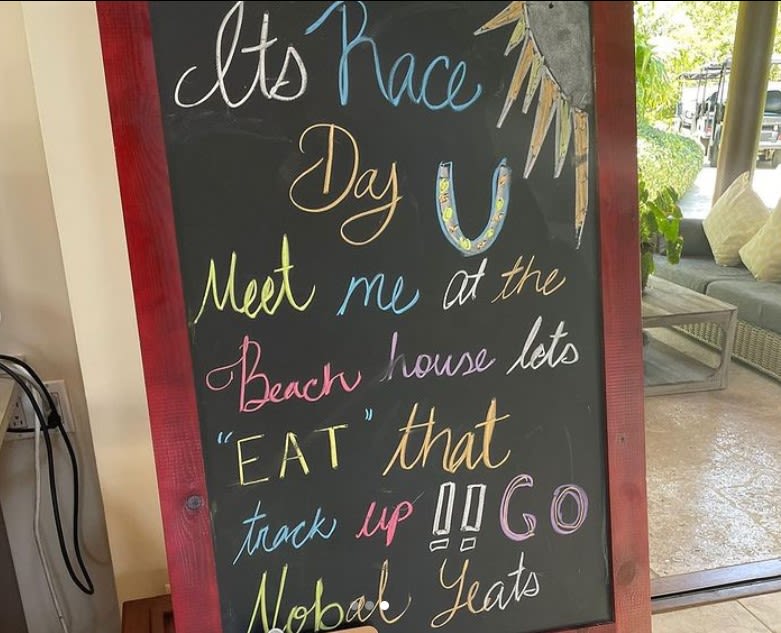 Its Race
Day
Meet me at the
Beach house lets
"EAT" that
track up !! GO
Nobal Yeats